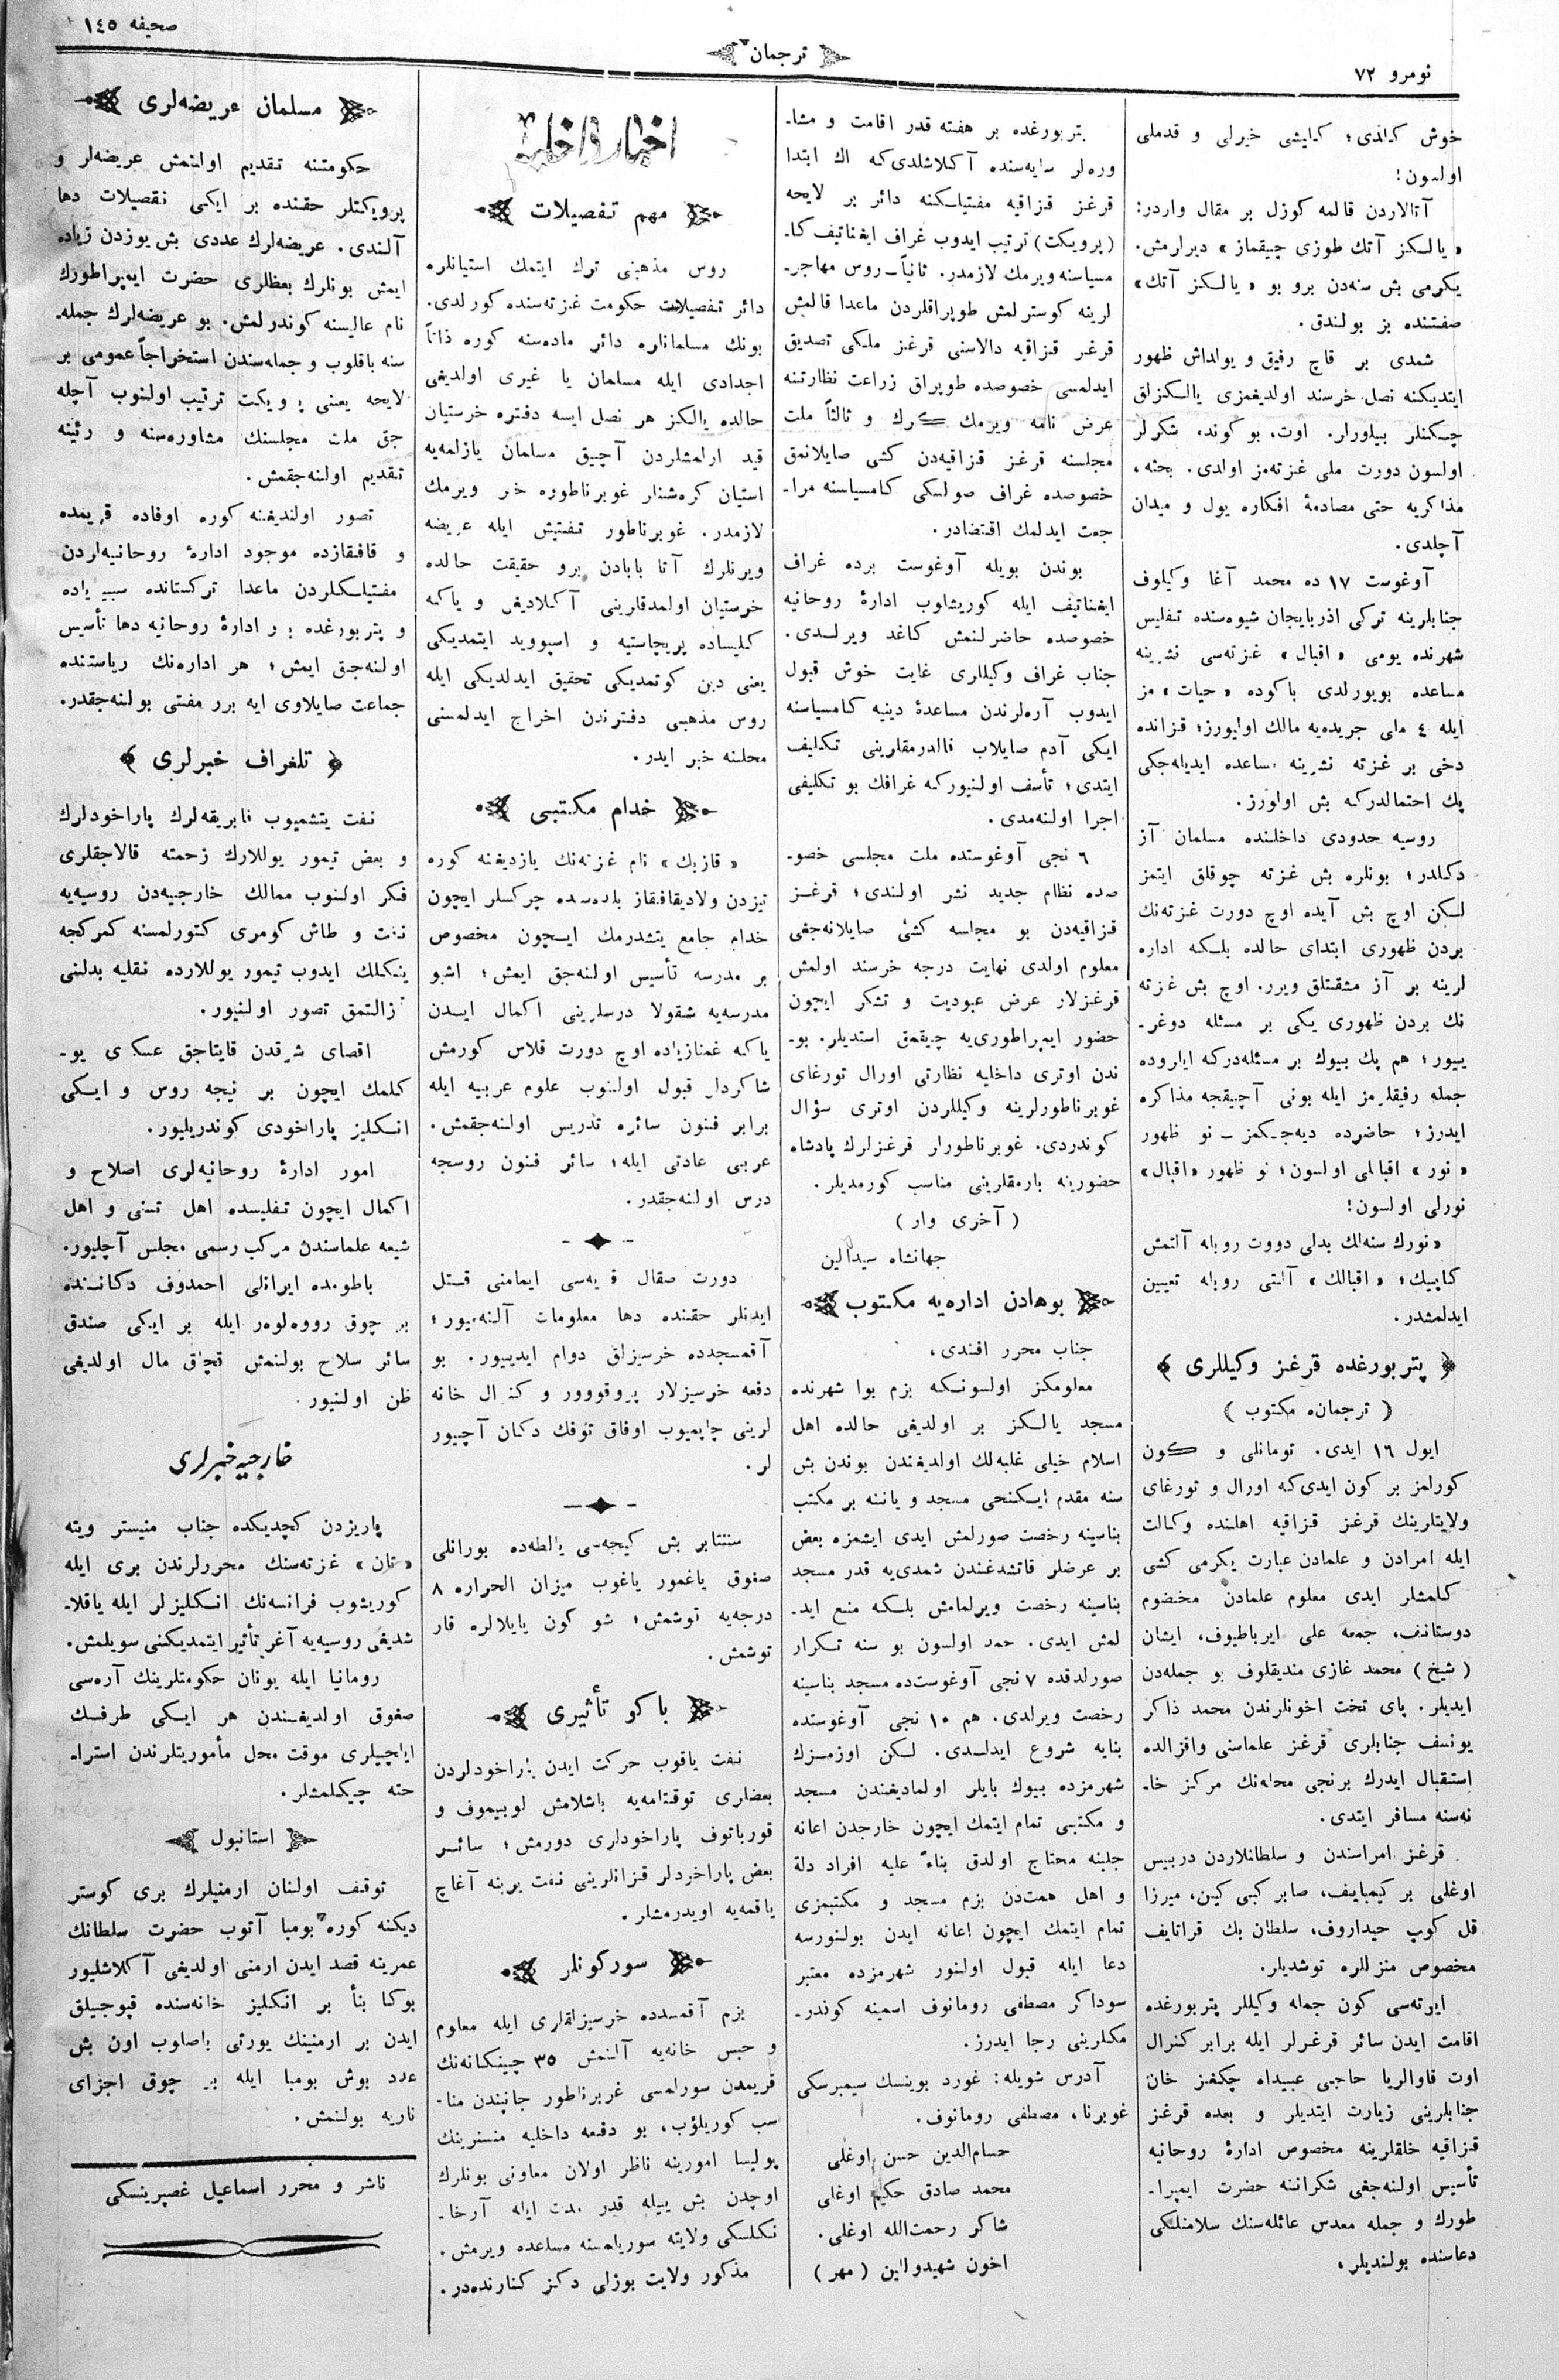 نومرو ٧٢
ترجمان
صحيفه ١٤٥
خوش كلدى؛ كليشى خيرلى و قدملى
اولسون!
آتالاردن قالمه كوزل بر مقال واردر:
«يالكز آتك طوزى چيقماز» ديرلرمش.
يكرمى بش سنه‌دن برو بو «يالكز آتك»
صفتنده بز بولندق.
شمدى بر قاچ رفيق و يولداش ظهور
ايتديكنه نصل خرسند اولديغمزى يالكزلق
چكنلر بيلورلر. اوت، بو كوند، شكرلر
اولسون دورت ملى غزته‌مز اولدى. بحثه،
مذاكره‌يه حتى مصادمۀ افكاره يول و ميدان
آچلدى.
آوغوست ١٧ ده محمد آغا وكيلوف
جنابلرينه تركى اذربايجان شيوه‌سنده تفليس
شهرنده يومى «اقبال» غزته‌سى نشرينه
مساعده بويورلدى باكوده «حيات» مز
ايله ٤ ملى جريده‌يه مالك اوليورز؛ قزانده
دخى بر غزته نشرينه مساعده ايديله‌جكى
پك احتمالدركه بش اولورز.
روسيه حدودى داخلنده مسلمان آز
دكلدر؛ بونلره بش غزته چوقلق ايتمز
لكن اوچ بش آيده اوچ دورت غزته‌نك
بردن ظهورى ابتداى حالده بلكه اداره
لرينه بر آز مشقتلق ويرر. اوچ بش غزته
نك بردن ظهورى يكى بر مسئله دوغر-
ييور؛ هم پك بيوك بر مسئله‌دركه ايلروده
جمله رفيقلرمز ايله بونى آچيقجه مذاكره
ايدرز؛ حاضرده ديه‌جكمز ــ نو ظهور
«نور» اقبالى اولسون؛ نو ظهور «اقبال»
نورلى اولسون!
«نورك سنه‌لك بدلى دورت روبله آلتمش
كاپيك؛ «اقبالك» آلتى روبله تعيين
ايدلمشدر.
پتربورغده قرغز وكيللرى
( ترجمانه مكتوب )
ايول ١٦ ايدى. تومانلى و كون
كورلمز بر كون ايدى‌كه اورال و تورغاى
ولايتلرينك قرغز قزاقيه اهلنده وكالت
ايله امرادن و علمادن عبارت يكرمى كشى
كلمشلر ايدى معلوم علمادن مخضوم
دوستانف، جمعه على ايرباطيوف، ايشان
( شيخ ) محمد غازى منديقلوف بو جمله‌دن
ايديلر. پاى تخت اخونلرندن محمد ذاكر
يونسف جنابلرى قرغز علماسنى واقزالده
استقبال ايدرك برنجى محله‌نك مركز خا-
نه‌سنه مسافر ايتدى.
قرغز امراسندن و سلطانلاردن دربيس
اوغلى بر كيمبايف، صابر كبى كين، ميرزا
قل كوپ حيداروف، سلطان بك قراتايف
مخصوص منزللره توشديلر.
ايرته‌سى كون جمله وكيللر پتربورغده
اقامت ايدن سائر قرغزلر ايله برابر كنرال
اوت قاوالريا حاجى عبيدالله چكغز خان
جنابلرينى زيارت ايتديلر و بعده قرغز
قزاقيه خلقلرينه مخصوص ادارۀ روحانيه
تأسيس اولنه‌جغى شكراننه حضرت ايمپرا-
طورك و جمله معدس عائله‌سنك سلامتلكى
دعاسنده بولنديلر،
پتربورغده بر هفته قدر اقامت و مشا-
وره‌لر سايه‌سنده آكلاشلدى‌كه اك ابتدا
قرغز قزاقيه مفتيلكنه دائر بر لايحه
(پرويكت) ترتيب ايدوب غراف ايغناتيف كا-
مسياسنه ويرمك لازمدر. ثانياً ــ روس مهاجر-
لرينه كوسترلمش طوپراقلردن ماعدا قالمش
قرغز قزاقيه دالاسنى قرغز ملكى تصديق
ايدلمسى خصوصده طوپراق زراعت نظارتنه
عرض نامه ويرمك كرك و ثالثاً ملت
مجلسنه قرغز قزاقيه‌دن كشى صايلانمق
خصوصده غراف صولسكى كامسياسنه مرا-
جعت ايدلمك اقتضادر.
بوندن بويله آوغوست برده غراف
ايغناتيف ايله كوريشلوب ادارۀ روحانيه
خصوصده حاضرلنمش كاغد ويرلدى.
جناب غراف وكيللرى غايت خوش قبول
ايدوب آره‌لرندن مساعدۀ دينيه كامسياسنه
ايكى آدم صايلاب قالدرمقلرينى تكليف
ايتدى؛ تأسف اولنيوركه غرافك بو تكليفى
اجرا اولنه‌مدى.
٦ نجى آوغوستده ملت مجلسى خصو-
صده نظام جديد نشر اولندى؛ قرغز
قزاقيه‌دن بو مجلسه كشى صايلانه‌جغى
معلوم اولدى نهايت درجه خرسند اولمش
قرغزلار عرض عبوديت و تشكر ايچون
حضور ايمپراطورى‌يه چيقمق استديلر. بو-
ندن اوترى داخليه نظارتى اورال تورغاى
غوبرناطورلرينه وكيللردن اوترى سؤال
كوندردى. غوبرناطورلر قرغزلرك پادشاه
حضورينه بارمقلرينى مناسب كورمديلر.
( آخرى وار )
جهانشاه سيدالين
بوهادن اداره‌يه مكتوب
جناب محرر افندى،
معلومكز اولسونكه بزم بوا شهرنده
مسجد يالكز بر اولديغى حالده اهل
اسلام خيلى غلبه‌لك اولديغندن بوندن بش
سنه مقدم ايكنجى مسجد و ياننه بر مكتب
بناسينه رخصت صورلمش ايدى ايشمزه بعض
بر عرضلر قاتشدغندن شمدى‌يه قدر مسجد
بناسينه رخصت ويرلمامش بلكه منع ايد-
لمش ايدى. حمد اولسون بو سنه تكرار
صورلدقده ٧ نجى آوغوست‌ده مسجد بناسينه
رخصت ويرلدى. هم ١٠ نجى آوغوستده
بنايه شروع ايدلدى. لكن اوزمزك
شهرمزده بيوك بايلر اولماديغندن مسجد
و مكتبى تمام ايتمك ايچون خارجدن اعانه
جلبنه محتاج اولدق بناءً عليه افراد دلۀ
و اهل همت‌دن بزم مسجد و مكتبمزى
تمام ايتمك ايچون اعانه ايدن بولنورسه
دعا ايله قبول اولنور شهرمزده معتبر
سوداكر مصطفى رومانوف اسمينه كوندر-
مكلرينى رجا ايدرز.
آدرس شويله: غورد بوينسك سيمبرسكى
غوبرنا، مصطفى رومانوف.
حسام‌الدين حسن اوغلى
محمد صادق حكيم اوغلى
شاكر رحمت‌الله اوغلى.
اخون شهيدوللين ( مهر )
اخبار داخليه
مهم تفصيلات
روس مذهبنى ترك ايتمك استيانلره
دائر تفصيلات حكومت غزته‌سنده كورلدى.
بونك مسلمانلره دائر ماده‌سنه كوره ذاتاً
اجدادى ايله مسلمان يا غيرى اولديغى
حالده يالكز هر نصل ايسه دفتره خرستيان
قيد ارلمشلردن آچيق مسلمان يازلمه‌يه
استيان كره‌شنلر غوبرناطوره خبر ويرمك
لازمدر. غوبرناطور تفتيش ايله عريضه
ويرنلرك آتا بابادن برو حقيقت حالده
خرستيان اولمدقلرينى آكلاديغى و ياكه
كليساده پريچاستيه و اسپوويد ايتمديكى
يعنى دين كوتمديكى تحقيق ايدلديكى ايله
روس مذهبى دفترندن اخراج ايدلمسنى
محلنه خبر ايدر.
خدام مكتبى
«قازبك» نام غزته‌نك يازديغنه كوره
تيزدن ولاديقافقاز بلده‌سده چركسلر ايچون
خدام جامع يتشدرمك ايچون مخصوص
بر مدرسه تأسيس اولنه‌جق ايمش؛ اشبو
مدرسه‌يه شقولا درسلرينى اكمال ايدن
ياكه غمنازياده اوچ دورت قلاس كورمش
شاكردلر قبول اولنوب علوم عربيه ايله
برابر فنون سائره تدريس اولنه‌جقمش.
عربى عادتى ايله؛ سائر فنون روسجه
درس اولنه‌جقدر.
دورت صقال قريه‌سى ايمامنى قتل
ايدنلر حقنده دها معلومات آلنه‌ميور؛
آقمسجدده خرسيزلق دوام ايدييور. بو
دفعه خرسيزلار پروقوور و كنرال خانه
لرينى چاپميوب اوفاق توفك دكان آچيور
لر.
سنتتابر بش كيجه‌سى يالطه‌ده بورانلى
صغوق ياغمور ياغوب ميزان الحراره ٨
درجه‌يه توشمش؛ شو كون يايلالره قار
توشمش.
باكو تأثيرى
نفت ياقوب حركت ايدن پاراخودلردن
بعضلرى توقتامه‌يه باشلامش لوبيموف و
قورباتوف پاراخودلرى دورمش؛ سائر
بعض پاراخودلر قزانلرينى نفت يرينه آغاچ
ياقمه‌يه اويدرمشلر.
سوركونلر
بزم آقمسجدده خرسيزلقلرى ايله معلوم
و حبس خانه‌يه آلنمش ٣٥ چينكانه‌نك
قريمدن سورلمسى غوبرناطور جانبندن منا-
سب كوريلؤب، بو دفعه داخليه منسترينك
پوليسا امورينه ناظر اولان معاونى بونلرك
اوچدن بش ييله قدر مدت ايله آرخا-
نكلسكى ولايته سوريلمسنه مساعده ويرمش.
مذكور ولايت بوزلى دكز كنارنده‌در.
مسلمان عريضه‌لرى
حكومتنه تقديم اولنمش عريضه‌لر و
پرويكتلر حقنده بر ايكى تفصيلات دها
آلندى. عريضه‌لرك عددى بش يوزدن زياده
ايمش بونلرك بعظلرى حضرت ايمپراطورك
نام عاليسنه كوندرلمش. بو عريضه‌لرك جمله-
سنه باقلوب و جمله‌سندن استخراجاً عمومى بر
لايحه يعنى پرويكت ترتيب اولنوب آچله
جق ملت مجلسنك مشاوره‌سنه و رئينه
تقديم اولنه‌جقمش.
تصور اولنديغنه كوره اوفاده قريمده
و قافقازده موجود ادارۀ روحانيه‌لردن
مفتيلكلردن ماعدا تركستانده سيبيرياده
و پتربورغده بر ادارۀ روحانيه دها تأسيس
اولنه‌جق ايمش؛ هر اداره‌نك رياستنده
جماعت صايلاوى ايه برر مفتى بولنه‌جقدر.
تلغراف خبرلرى
نفت يتشميوب فابريقه‌لرك پاراخودلرك
و بعض تيمور يوللارك زحمته قالاجقلرى
فكر اولنوب ممالك خارجيه‌دن روسيه‌يه
نفت و طاش كومرى كتورلمسنه كمركجه
ينكيلك ايدوب تيمور يوللارده نقليه بدلنى
آزالتمق تصور اولنيور.
اقصاى شرقدن قايتاجق عسكرى يو-
كلمك ايچون بر نيجه روس و ايكى
انكليز پاراخودى كوندريليور.
امور ادارۀ روحانيه‌لرى اصلاح و
اكمال ايچون تفليسده اهل تسنى و اهل
شيعه علماسندن مركب رسمى مجلس آچليور.
باطومده ايرانلى احمدوف دكاننده
بر چوق رووه‌لوه‌ر ايله بر ايكى صندق
سائر سلاح بولنمش قچاق مال اولديغى
ظن اولنيور.
خارجيه خبرلرى
پاريزدن كچديكده جناب منيستر ويته
«تان» غزته‌سنك محررلرندن برى ايله
كوريشوب فرانسه‌نك انكليزلر ايله ياقلا-
شديغى روسيه‌يه آغر تأثير ايتمديكنى سويلمش.
رومانيا ايله يونان حكومتلرينك آره‌سى
صغوق اولديغندن هر ايكى طرفك
ايلچيلرى موقت محل مأموريتلرندن استرا-
حته چيكلمشلر.
استانبول
توقيف اولنان ارمنيلرك برى كوستر
ديكنه كوره بومبا آتوب حضرت سلطانك
عمرينه قصد ايدن ارمنى اولديغى آكلاشليور
بوكا بنأ بر انكليز خانه‌سنده قپوجيلق
ايدن بر ارمنينك يورتى باصلوب اون بش
عدد بوش بومبا ايله بر چوق اجزاى
ناريه بولنمش.
ناشر و محرر اسماعيل غصپرينسكى